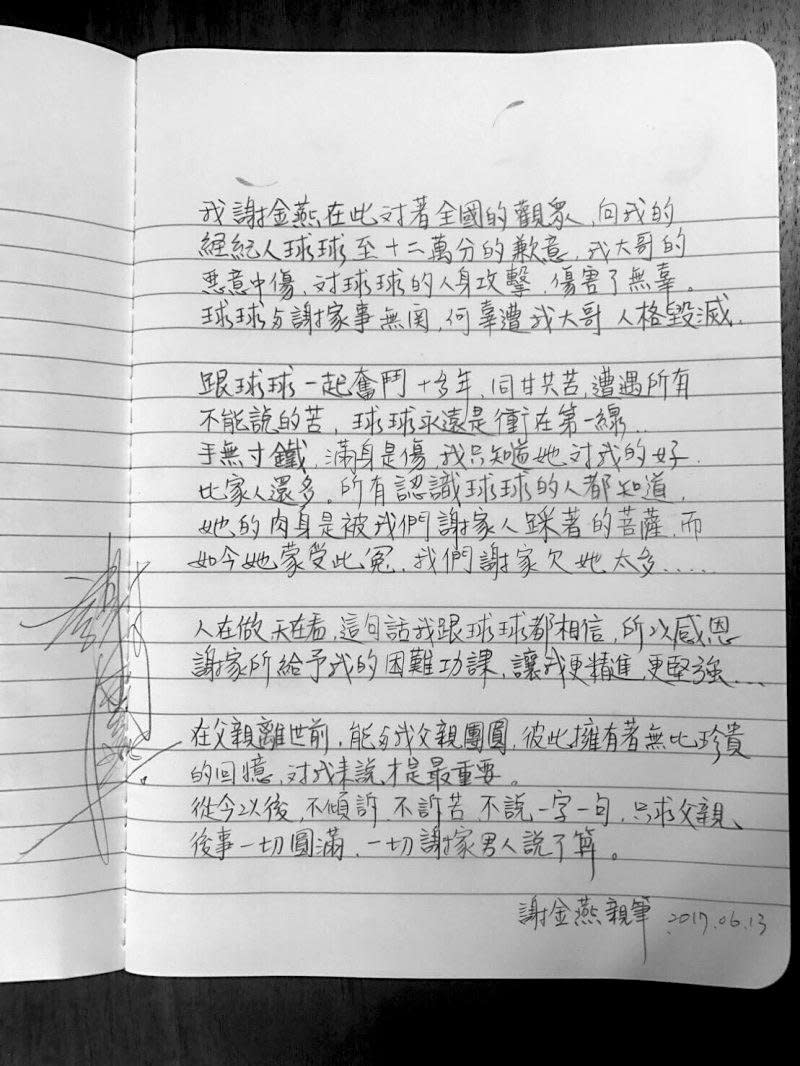 我謝金燕在此对著全國的觀眾，向我的
經紀人球球至十二萬分的歉意，我大哥的
惡意中傷，对球球的人身攻擊，傷害了無辜。
球球与謝家事無関，何辜遭我大哥人格毀滅.
跟球球一起奮鬥十多年，同甘共苦，遭遇所有
不能說的苦，球球永遠是衝在第一線...
手無寸鐵，滿身是傷，我只知道她对我的好.
比家人還多。所有認識球球的人都知道，
她的肉身是被我們謝家人踩著的菩薩，而
如今她蒙受此冤，我們謝家欠她太多......
人在做天在看，這句話我跟球球都相信，所以感恩
謝家所給予我的困難功課，讓我更精進，更堅強....
在父親離世前，能与我父親團圓，彼此擁有著無比珍貴
的回憶，对我来說才是最重要。
從今以後，不傾訴，不訴苦，不說一字一句，只求父親、
後事一切圓滿，一切謝家男人說了算。
謝金燕親筆 2017.06.13